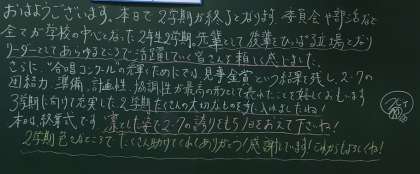 おはようございます。本日で2学期が終了となります。委員会や部活など
全てが学校の中心となった2年生2学期。先輩として後輩をひっぱる立場となり
リーダーとしてあらゆるところで活躍していく皆さんを頼もしく感じました。
さらに"合唱コンクール"の
見事金賞という結果を残し、2-7の
団結力、準備、計画性、協調性が最高の形として表れたことを
3学期に向けて充実した2学期たくさんの大切なものを手に入れましたね！
本日は終業式です。凛とした姿で2-7の誇りをもち1日を終えて下さいね！
2学期色々なところでたくさん助けてくれてありがとう！感謝しています！これからもよろしくね！